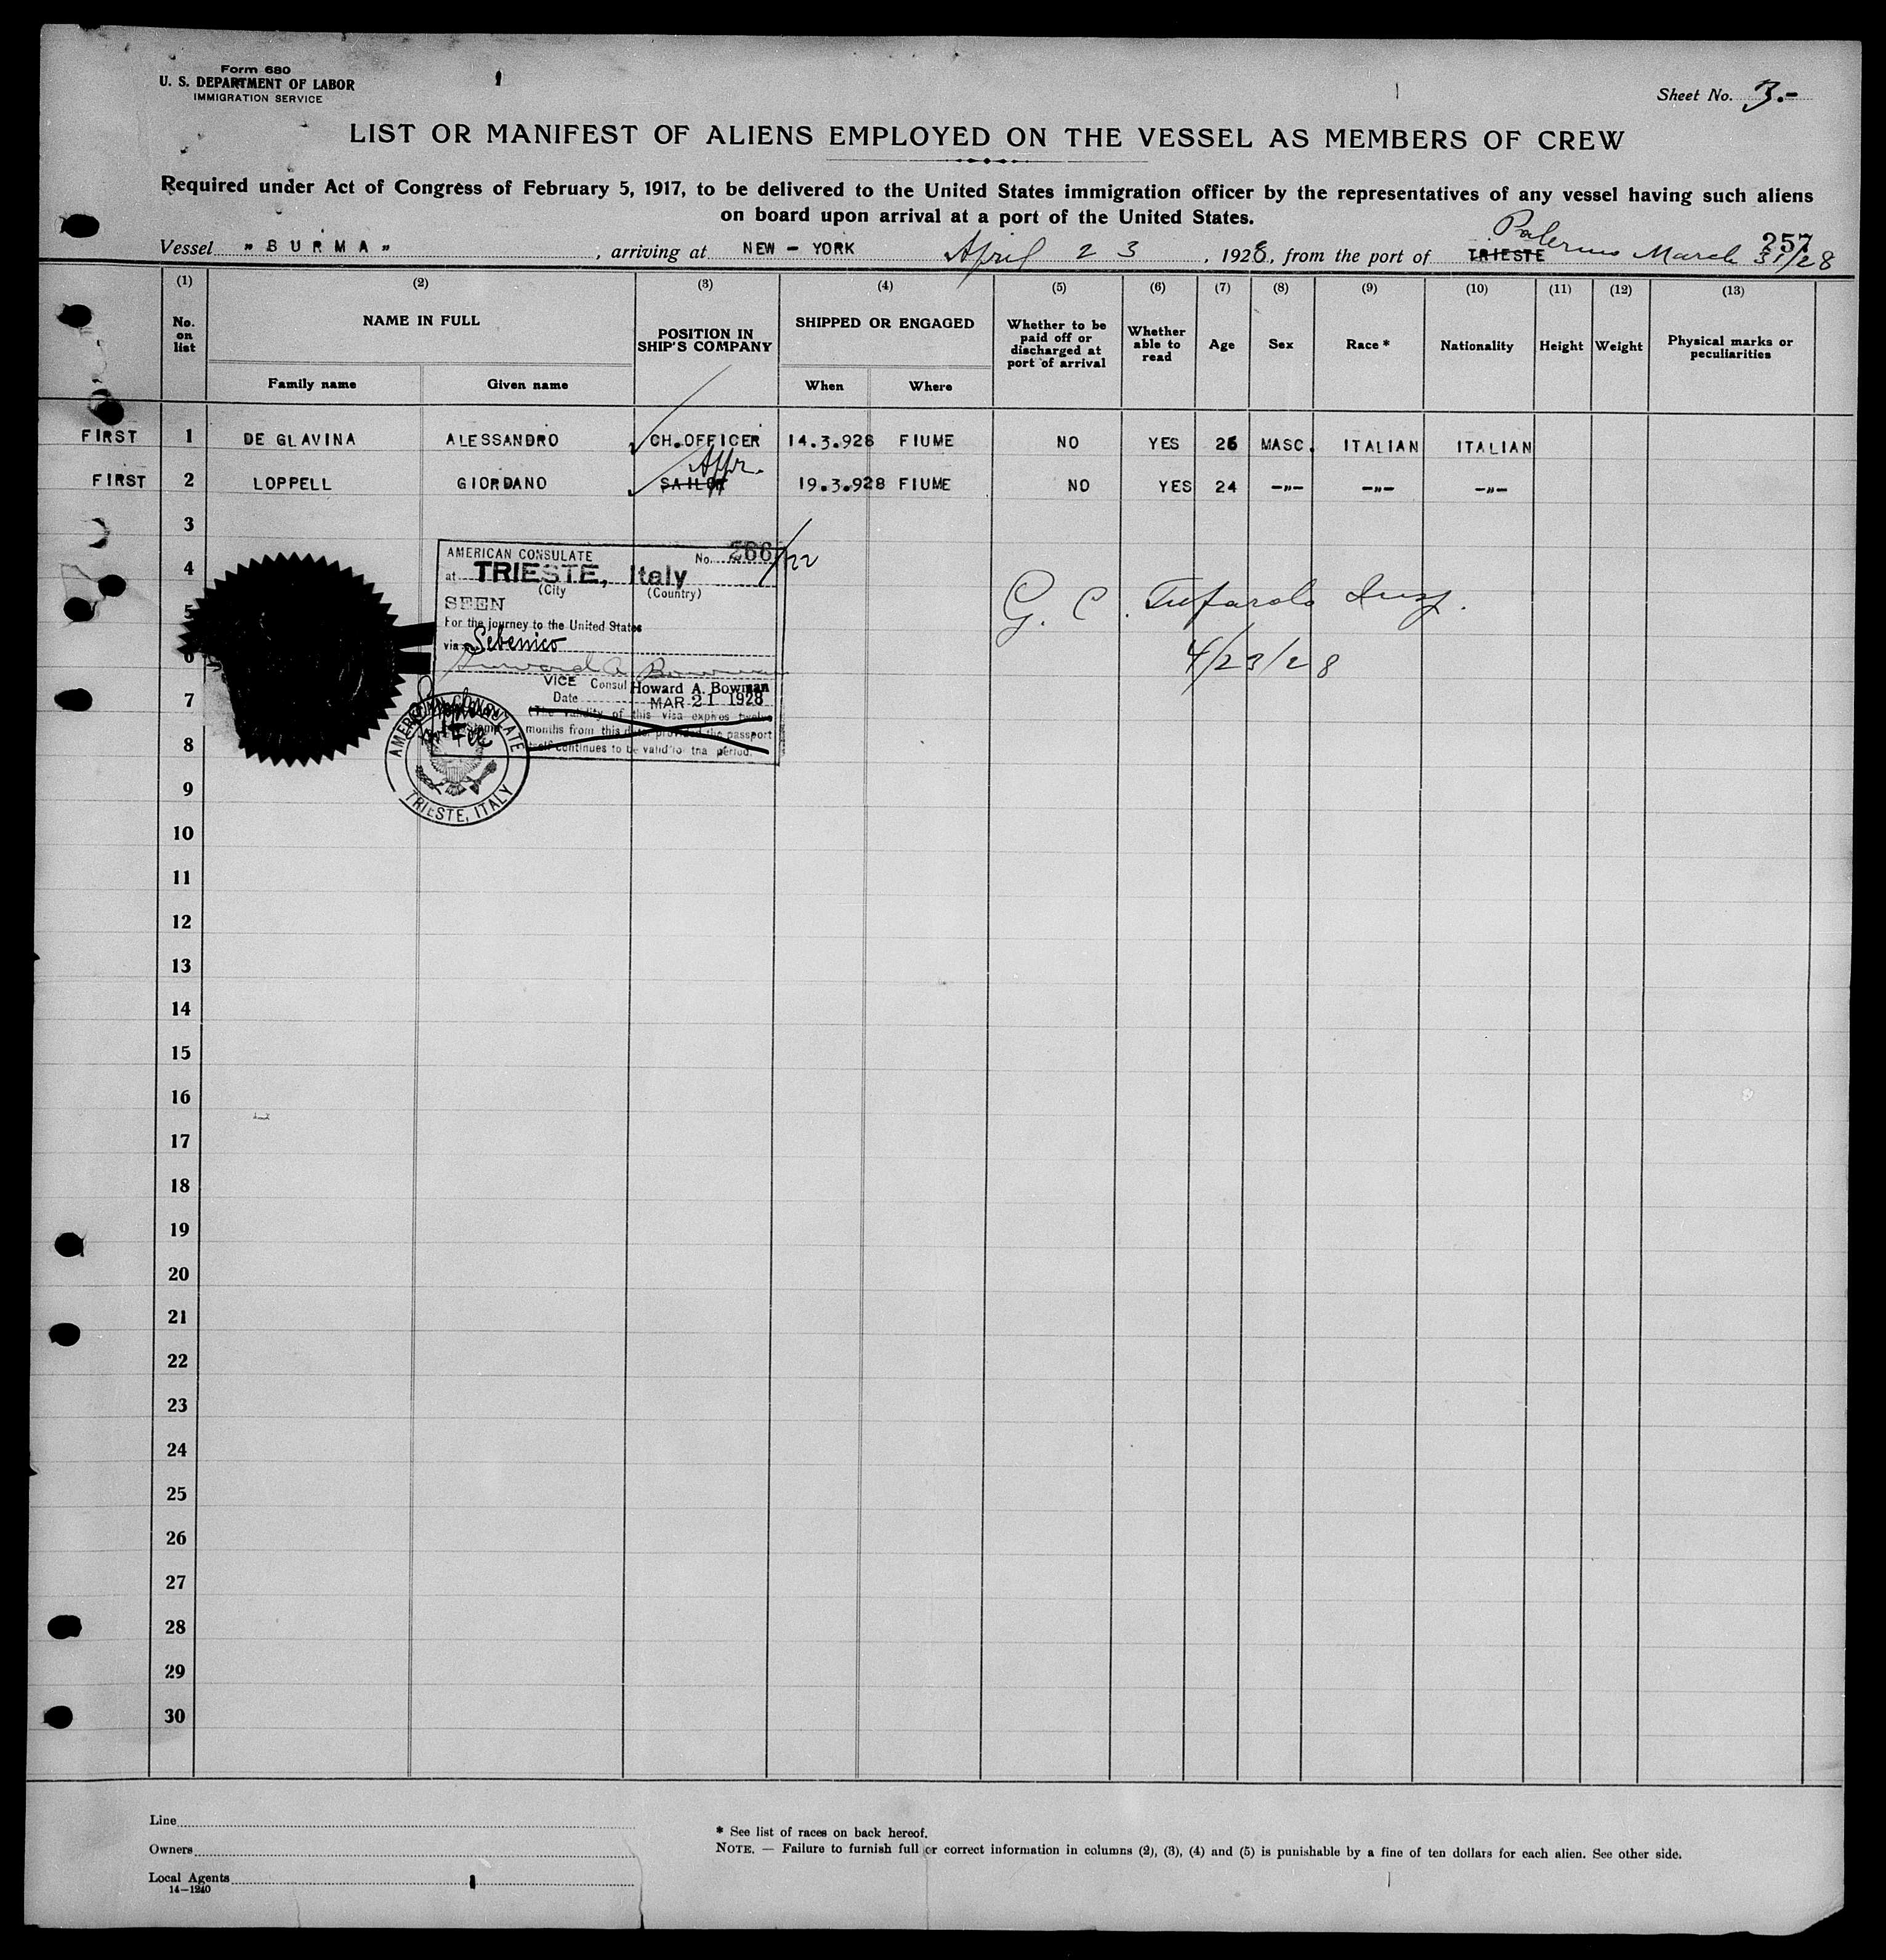 Form 680
U. S. DEPARTMENT OF LABOR
IMMIGRATION SERVICE
Sheet No. 3.-
LIST OR MANIFEST OF ALIENS EMPLOYED ON THE VESSEL AS MEMBERS OF CREW
Required under Act of Congress of February 5, 1917, to be delivered to the United States immigration officer by the representatives of any vessel having such aliens
on board upon arrival at a port of the United States.
257
Vessel "BURMA", arriving at NEW - YORK April 23, 1928, from the port of TRIESTE Palermo March 31/28
(1) (2) (3) (4) (5) (6) (7) (8) (9) (10) (11) (12) (13)
No. on list NAME IN FULL POSITION IN SHIP'S COMPANY SHIPPED OR ENGAGED Whether to be paid off or discharged at port of arrival Whether able to read Age Sex Race * Nationality Height Weight Physical marks or peculiarities
Family name Given name When Where
FIRST 1 DE GLAVINA ALESSANDRO CH.OFFICER 14.3.928 FIUME NO YES 26 MASC. ITALIAN ITALIAN
Appr.
FIRST 2 LOPPELL GIORDANO SAILOR 19.3.928 FIUME NO YES 24 -"- -"- -"-
3
4
5
6
7
8
9
10
11
12
13
14
15
16
17
18
19
20
21
22
23
24
25
26
27
28
29
30
AMERICAN CONSULATE No. 266/22
at TRIESTE, Italy
(City (Country)
SEEN
For the journey to the United States
via Sebenico
Howard A. Bowman
VICE Consul Howard A. Bowman
Date MAR 21 1928
(The validity of this visa expires twelve
months from this date provided the passport
itself continues to be valid for tha period.
AMERICAN CONSULATE
TRIESTE, ITALY
G. C. Tufarolo Insp.
4/23/28
Line
Owners
Local Agents
14-1240
* See list of races on back hereof.
NOTE. — Failure to furnish full or correct information in columns (2), (3), (4) and (5) is punishable by a fine of ten dollars for each alien. See other side.